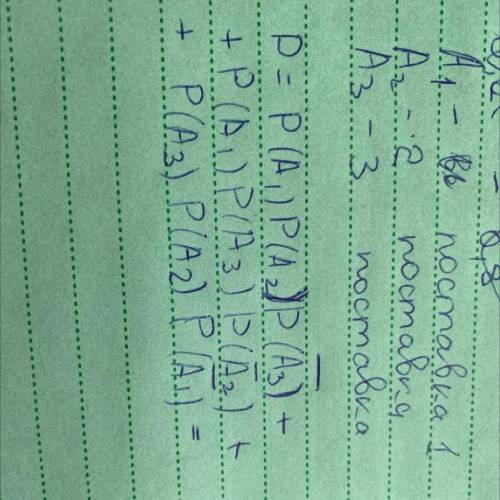 - 0,8
A₁ - поставка 1
A₂ - 2 поставка
A₃ - 3 поставка
P = P(A₁)P(A₂)P(A̅₃) +
+ P(A₁)P(A₃)P(A̅₂) +
+ P(A₃)P(A₂)P(A̅₁) =